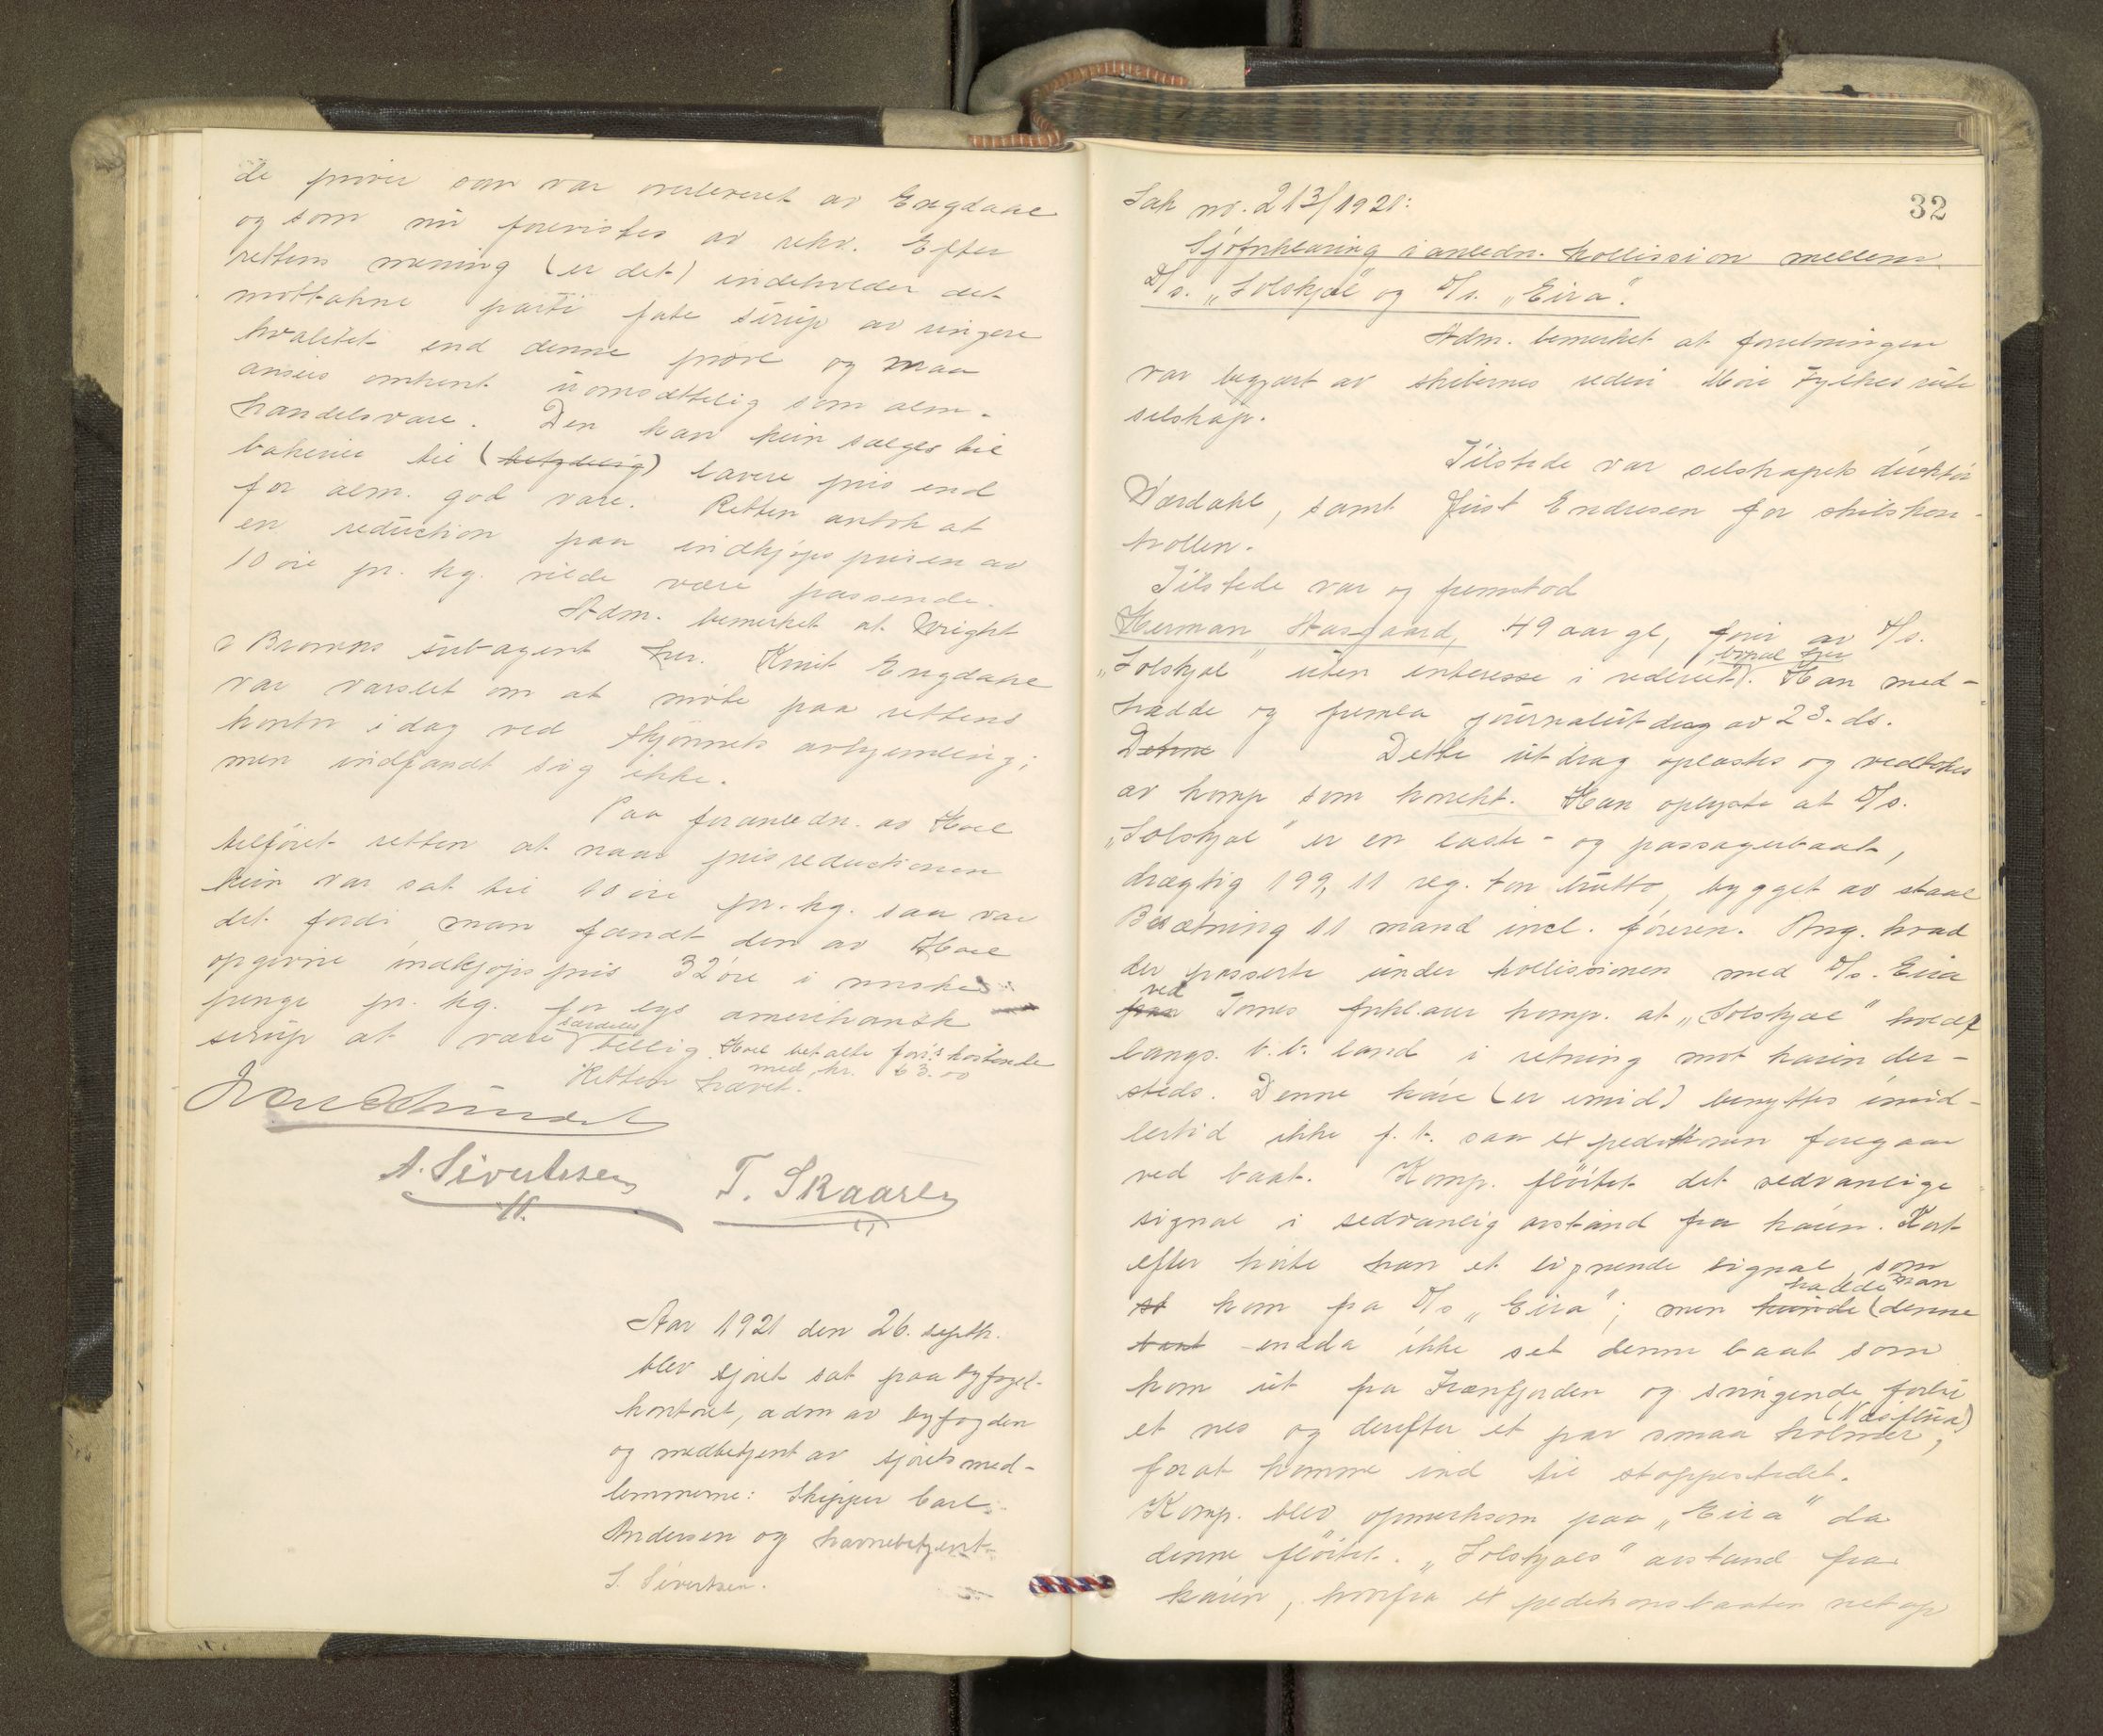 de prøver som var overleveret av Engdaal
og som nu forevistes av rekv. Efter
rettens mening (er det) indeholder det
mottakne parti fate sirup av ringere
kvalitet end denne prøve og maa
ansees omtrent uomsættelig som alm.
handelsvare. Den kan kun sælges til
bakerier til (betydelig) lavere pris end
for alm. god vare. Retten antok at
en reduction paa indkjøpsprisen av
10 øre pr. kg. vilde være passende.
Adm. bemerket at Wright
& Browns subagent hr. Knut Engdahl
var varslet om at møte paa rettens
kontor i dag ved skjønnets avhjemling;
men indfandt sig ikke.
Paa foranledn. av Hoel
tilføiet retten at naar prisreductionen
kun var sat til 10 øre pr. kg. saa var
det fordi man fandt den av Hoel
opgivne indkjøpspris 32 øre i norske
penge pr. kg. for lys amerikansk
sirup at være særdeles billig. Hoel betalte forr.s kostende
med kr. 63.00
Retten hævet.
A. Sivertsen
T. Skaare
Aar 1921 den 26. septb.
blev sjøret sat paa byfoged-
kontoret, adm av byfogden
og medbetjent av sjøretsmed-
lemmerne: Skipper Carl
Andersen og havnebetjent
S. Sivertsen.
32
Sak no. 213/1921:
Sjøforklaring i anledn. kollission mellem
D/s. „Solskjel" og D/s. „Eira".
Adm. bemerket at forretningen
var begjært av skibernes rederi Møre Fylkes rute
selskap.
Tilstede var selskapets direktør
Værdahl, samt Just Endresen for skibskon-
trollen.
Tilstede var og fremstod
Herman Aasgaard, 49 aar gl, fører av D/s.
bopæl her
„Solskjel" uten interesse i rederiet). Han med-
hadde og fremla journalutdrag av 23. ds.
Denne Dette utdrag oplæstes og vedtokes
av komp som korrekt. Han oplyste at D/s.
„Solskjel" er en laste- og passagerbaat,
drægtig 199,11 reg. ton brutto, bygget av staal
Besætning 11 mand incl. føreren. Ang. hvad
der passerte under kollissionen med D/s. Eira
ved
paa Tornes forkl.aer komp. at „Solskjel" holdt
langs b.b. land i retning mot kaien der-
steds. Denne kaie (er imid) benyttes imid-
lertid ikke f.t. saa expeditionen foregaar
ved baat. Komp. fløitet det sedvanlige
signal i sedvanlig avstand fra kaien. Kort
efter hørte han et lignende signal som
hadde man
st kom fra D/s „Eira"; men kunde (denne
baat endda ikke set denne baat som
kom ut fra Frænfjorden og svingende forbi
et nes og derefter et par smaa holmer,
(Næsflua)
forat komme ind til stoppestedet.
Komp. blev opmerksom paa „Eira" da
denne fløitet. „Solskjels" avstand fra
kaien, hvorfra expeditionsbaaten netop